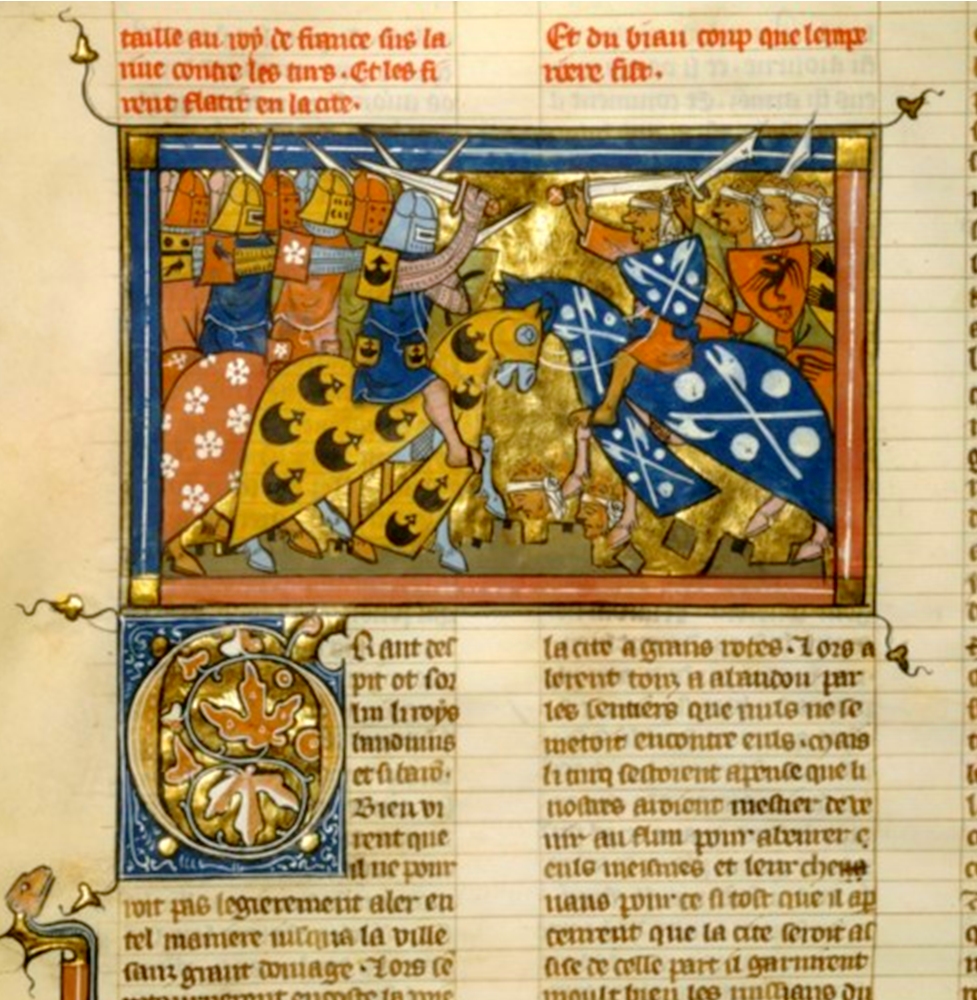 taille au roy de france sus la
riue contre les turs. Et les fi
rent flatir en la cite.
Et du biau coup que lempe
rere fist.
Quant des
pit ot for
lui li roys
baudouins
et si baro.
Bien vi
rent que
il ne pour
roit pas legierement aler en
tel maniere iusqua la ville
sanz grant domage. Lors se
la cite a grans rotes. Lors a
lerent touz a abandon par
les sentiers que nuls ne se
metoit encontre euls. mais
li turq sestoient apense que li
nostres auoient mestier de ve
nir au flun pour abeurer
euls meismes et leur che
uaus pour ce si tost que il ap
cenrent que la cite seroit as
sise de celle part il garnirent
moult bien les